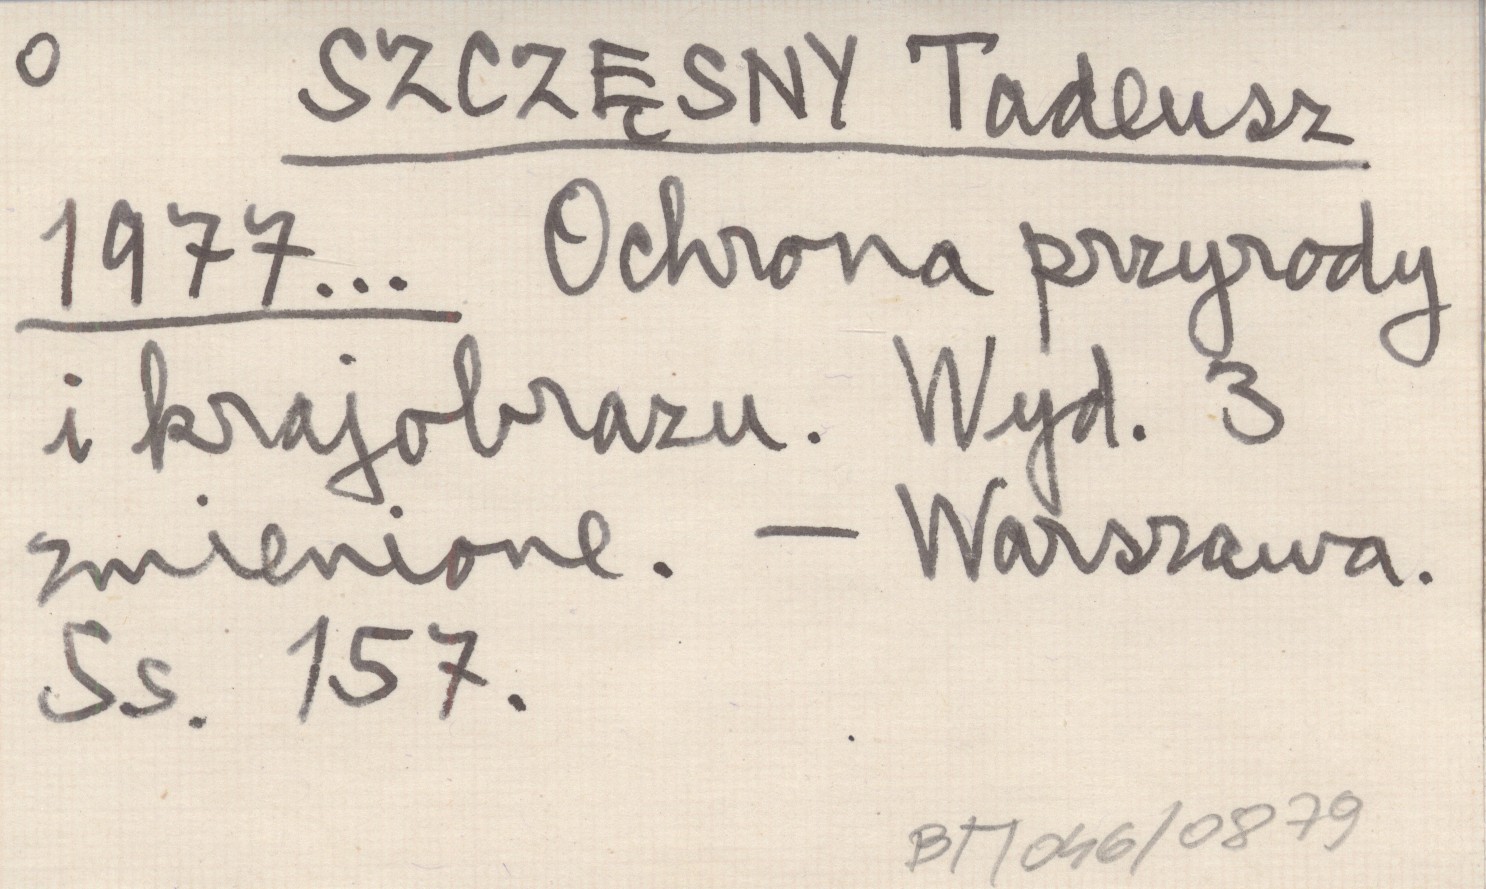 O SZCZĘSNY Tadeusz
1977... Ochrona przyrody
i krajobrazu. Wyd. 3
zmienione. — Warszawa.
Ss. 157.
BM/046/0879